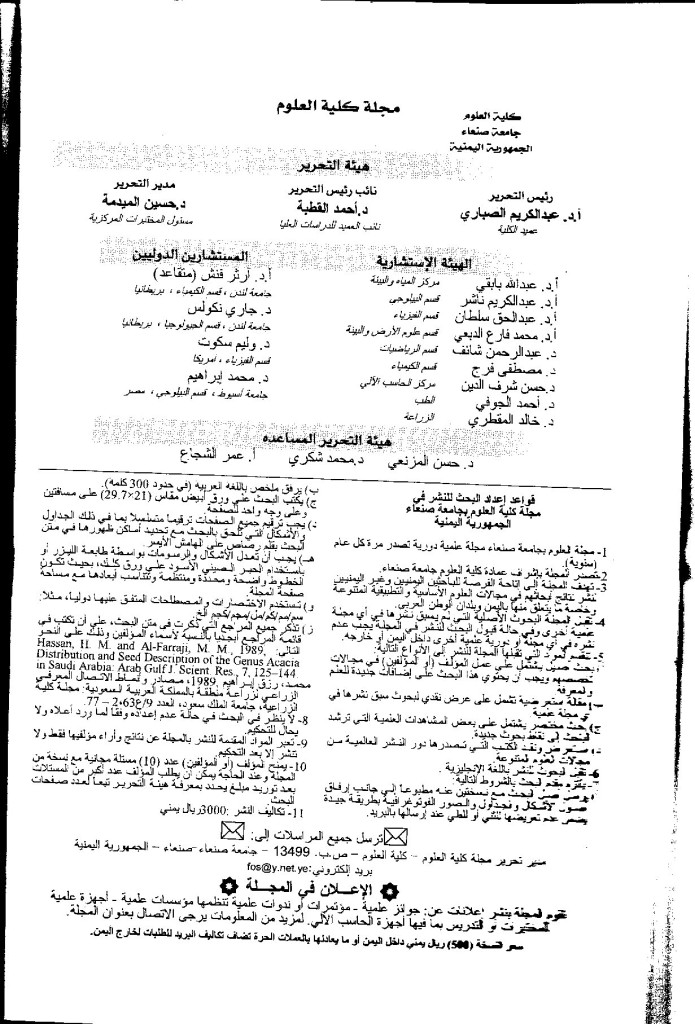 مجلة كلية العلوم
كلية العلوم
جامعة صنعاء
الجمهورية اليمنية
هيئة التحرير
رئيس التحرير
أ.د. عبدالكريم الصباري
عميد الكلية
نائب رئيس التحرير
د.أحمد القطبة
نائب العميد للدراسات العليا
مدير التحرير
د.حسين الميدمة
مسئول المختبرات المركزية
الهيئة الإستشارية
أ.د. عبدالله بابقي مركز المياه والبيئة
أ.د. عبدالكريم ناشر قسم البيلوجي
أ.د. عبدالحق سلطان قسم الفيزياء
أ.د. محمد فارع الدبعي قسم علوم الأرض والبيئة
د. عبدالرحمن شائف قسم الرياضيات
د. مصطفى فرج قسم الكيمياء
د. حسن شرف الدين مركز الحاسب الآلي
د. أحمد الجوفي الطب
د. خالد المقطري الزراعة
المستشارين الدوليين
أ.د. أرثر فنش (متقاعد)
جامعة لندن ، قسم الكيمياء ، بريطانيا
د. جاري نكولس
جامعة لندن ، قسم الجيولوجيا ، بريطانيا
د. وليم سكوت
قسم الفيزياء ، امريكا
د. محمد إبراهيم
جامعة أسيوط ، قسم البيلوجي ، مصر
هيئة التحرير المساعده
د. حسن المزنعي د.محمد شكري أ. عمر الشجاع
قواعد إعداد البحث للنشر في
مجلة كلية العلوم بجامعة صنعاء
الجمهورية اليمنية
1- مجلة العلوم بجامعة صنعاء مجلة علمية دورية تصدر مرة كل عام
(سنوية).
2- تصدر المجلة بإشراف عمادة كلية العلوم جامعة صنعاء.
3- تهدف المجلة إلى إتاحة الفرصة للباحثين اليمنيين وغير اليمنيين
لنشر نتائج أبحاثهم في مجالات العلوم الأساسية والتطبيقية المتنوعة
وخاصة ما يتعلق منها باليمن وبلدان الوطن العربي.
4- تقبل المجلة البحوث الأصلية التي لم يسبق نشرها في أي مجلة
علمية أخرى وفي حالة قبول البحث للنشر في المجلة يجب عدم
نشره في أي مجلة أو دورية علمية أخرى داخل اليمن أو خارجه.
5- تقسم المواد التي تقبلها المجلة للنشر إلى الأنواع التالية:
أ- بحث أصيل يشتمل على عمل المؤلف (أو المؤلفين) في مجالات
تخصصهم ويجب أن يحتوي هذا البحث على إضافات جديدة للعلم
والمعرفة.
ب- مقالة مستعرضية تشمل على عرض نقدي لبحوث سبق نشرها في
أي مجلة علمية
ج) بحث مختصر يشتمل على بعض المشاهدات العلمية التي ترشد
الباحث إلى نقط بحوث جديدة.
د- استعراض ونقد الكتب التي تصدرها دور النشر العالمية من
مجالات العلوم المتنوعة.
6- تقبل البحوث للنشر باللغة الإنجليزية.
7- يلتزم مقدم البحث بالشروط التالية:
البحث مع نسختين عنه مطبوعاً إلى جانب إرفاق
أصول الأشكال والجداول والصور الفوتوغرافية بطريقة جيدة
يضمن عدم تعريضها للثني أو للطي عند إرسالها بالبريد.
ب) يرفق ملخص باللغه العربيه (في حدود 300 كلمة).
ج) يكتب البحث على ورق أبيض مقاس (21×29.7) على مسافتين
وعلى وجه واحد للصفحة.
د) يجب ترقيم جميع الصفحات ترقيماً متسلسلاً بما في ذلك الجداول
والأشكال التي تلحق بالبحث مع تحديد أماكن ظهورها في متن
البحث بقلم رصاص على الهامش الأيسر.
هـ) يجب أن تعدل الأشكال والرسومات بواسطة طابعة الليزر أو
باستخدام الحبر الصيني الأسود على ورق كلك، بحيث تكون
الخطوط واضحة ومحددة ومنتظمة وتتناسب أبعادها مع مساحة
صفحة المجلة.
و) تستخدم الاختصارات والمصطلحات المتفق عليها دوليا، مثلا:
سم/مم/كم/مل/مجم/كجم الخ.
ز) تذكر جميع المراجع التي ذكرت في متن البحث، على أن تكتب في
قائمة المراجع أبجدياً بالنسبة لأسماء المؤلفين وذلك على النحو
التالي: Hassan, H. M. and Al-Farraji, M. M., 1989,
Distribution and Seed Description of the Genus Acacia
in Saudi Arabia: Arab Gulf J. Scient. Res., 7, 125–144.
محمد، رزق إبراهيم، 1989، مصادر وأنماط الاتصال المعرفي
الزراعي لزراعة منطقة بالمملكة العربية السعودية: مجلة كلية
الزراعية، جامعة الملك سعود، العدد 9/ع2، 63 – 77.
8- لا ينظر في البحث في حالة عدم إعداده وفقا لما ورد أعلاه ولا
يحال للتحكيم.
9- تعبر المواد المقدمة للنشر بالمجلة عن نتائج وأراء مؤلفيها فقط ولا
تنشر إلا بعد التحكيم.
10- يمنح المؤلف (أو المؤلفين) عدد (10) مستلة مجانية مع نسخة من
المجلة وعند الحاجة يمكن أن يطلب المؤلف عدد أكبر من المستلات
بعد توريد مبلغ يحدد بمعرفة هيئة التحرير تبعاً لعدد صفحات
البحث.
11- تكاليف النشر :3000ريال يمني
ترسل جميع المراسلات إلى:
مدير تحرير مجلة كلية العلوم – كلية العلوم – ص.ب. 13499 – جامعة صنعاء-صنعاء – الجمهورية اليمنية
بريد إلكتروني:fos@y.net.ye
الإعلان في المجلة
تقوم المجلة بنشر إعلانات عن: جوائز علمية - مؤتمرات أو ندوات علمية تنظمها مؤسسات علمية - أجهزة علمية
للمختبرات أو للتدريس بما فيها أجهزة الحاسب الآلي. لمزيد من المعلومات يرجى الاتصال بعنوان المجلة.
سعر النسخة (500) ريال يمني داخل اليمن أو ما يعادلها بالعملات الحرة تضاف تكاليف البريد للطلبات لخارج اليمن.